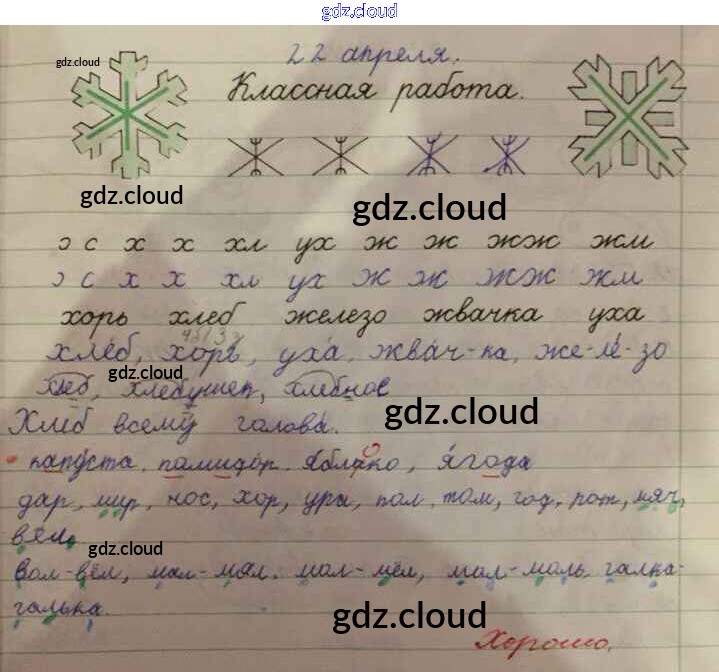 gdz.cloud
22 апреля.
gdz.cloud
Классная работа.
gdz.cloud
gdz.cloud
э с х х хл ух ж ж жж жм
э с х х хл ух ж ж жж жм
хорь хлеб железо жвачка уха
хлеб, хорь, уха, жвач-ка, же-ле-зо
gdz.cloud
хлеб, хлебушек, хлебное
gdz.cloud
Хлеб всему голова.
капуста, помидор, яблоко, ягода
дар, мир, нос, хор, ура, пол, том, год, рот, мяч,
вёл,
gdz.cloud
вол-вёл, мал-мял, мол-мёл, мол-моль, галка-
галька.
gdz.cloud
Хорошо.